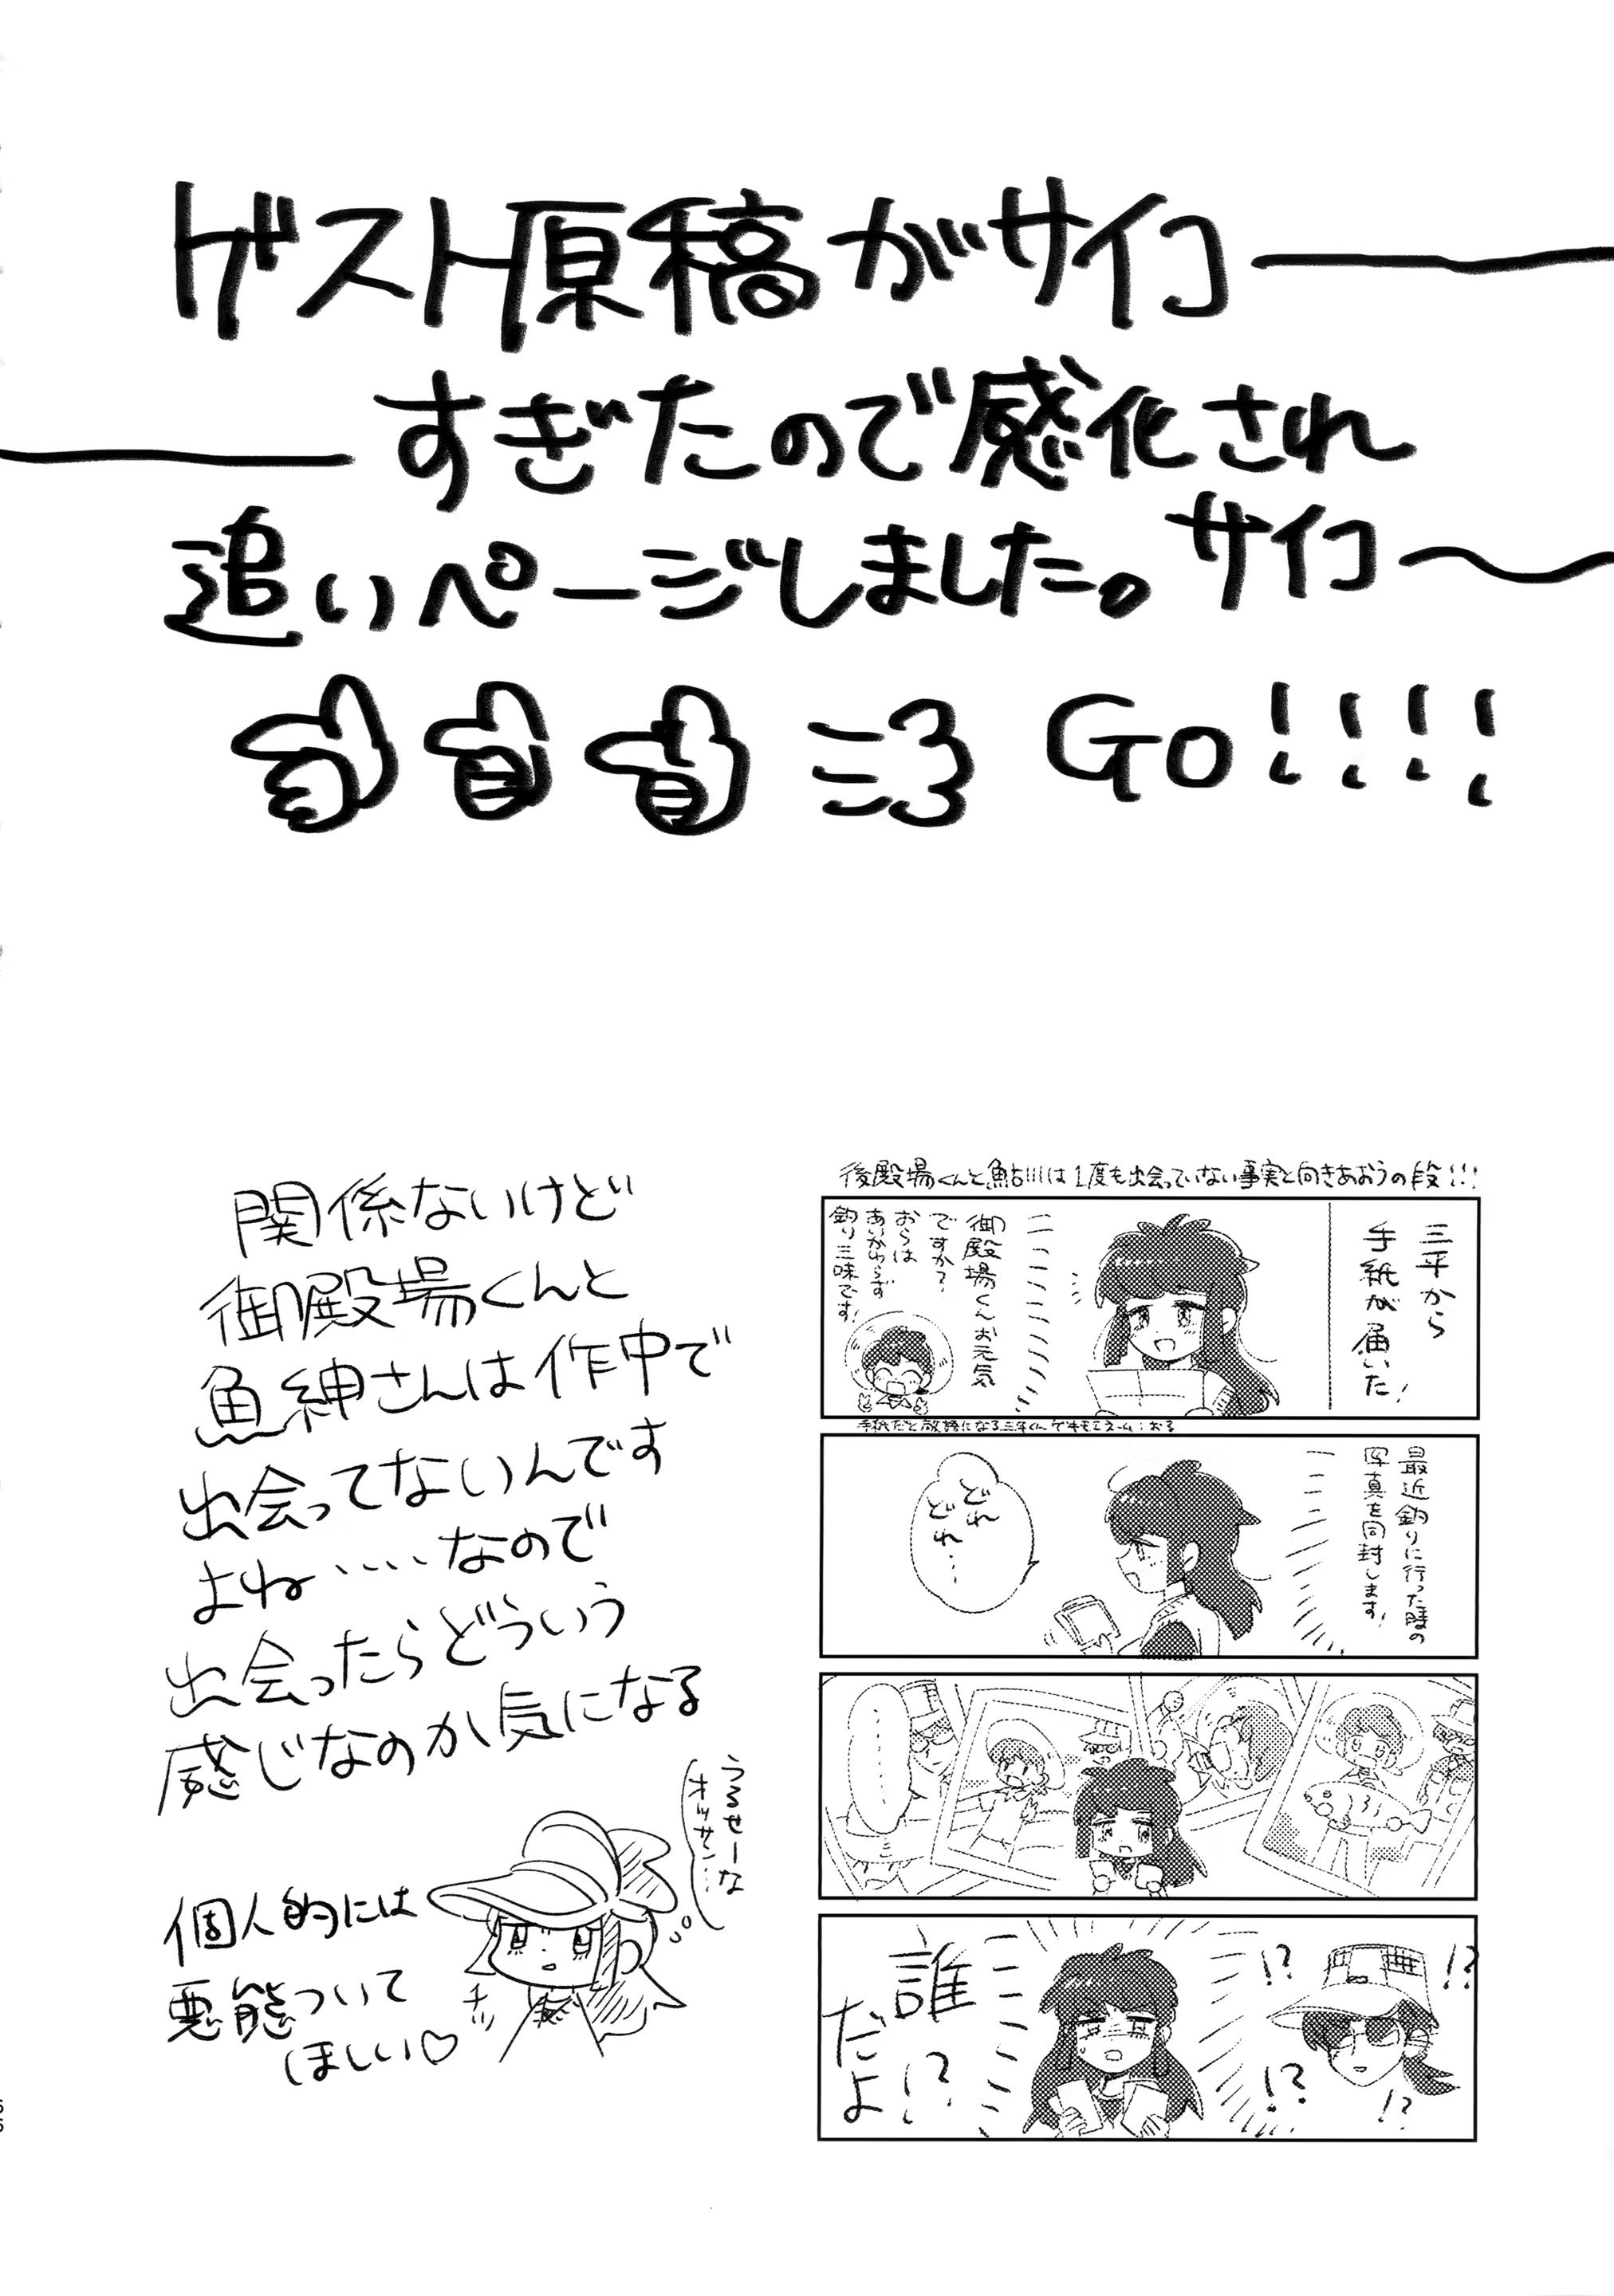 ゲスト原稿がサイコ――
――すぎたので感化され
追いページしました。サイコ～
Go!!!!
後殿場くんと鮎川は1度も出会っていない事実と向きあおうの段!!!
三平から
手紙が届いた!
御殿場くんお元気
ですか?
おらは
あいかわらず
釣り三昧です!
最近釣りに行った時の
写真を同封します!
どれ
どれ…
……
誰
だよ!?
!?
!?
!?
!?
関係ないけど
御殿場くんと
魚紳さんは作中で
出会ってないんです
よね‥‥なので
出会ったらどういう
感じなのか気になる
うるせーな
オッサン…
チッ
個人的には
悪態ついて
ほしい♡